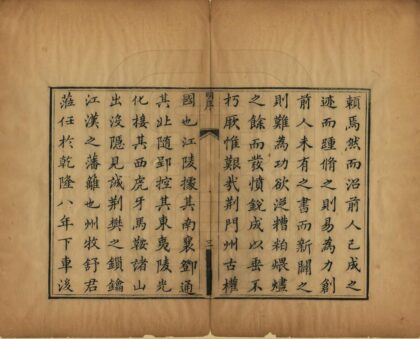 賴焉然而沿前人已成之
迹而踵脩之則易為力創
前人未有之書而新闢之
則難為功欲從糟粕煨燼
之餘而發憤銳成以垂不
朽厥惟艱哉荆門州古權
序
三
國也江陵據其南襄鄧通
其北隨郢控其東夷陵光
化接其西虎牙馬鞍諸山
出沒隱見誠荆樊之鎖鑰
江漢之藩籬也州牧舒君
蒞任於乾隆八年下車後